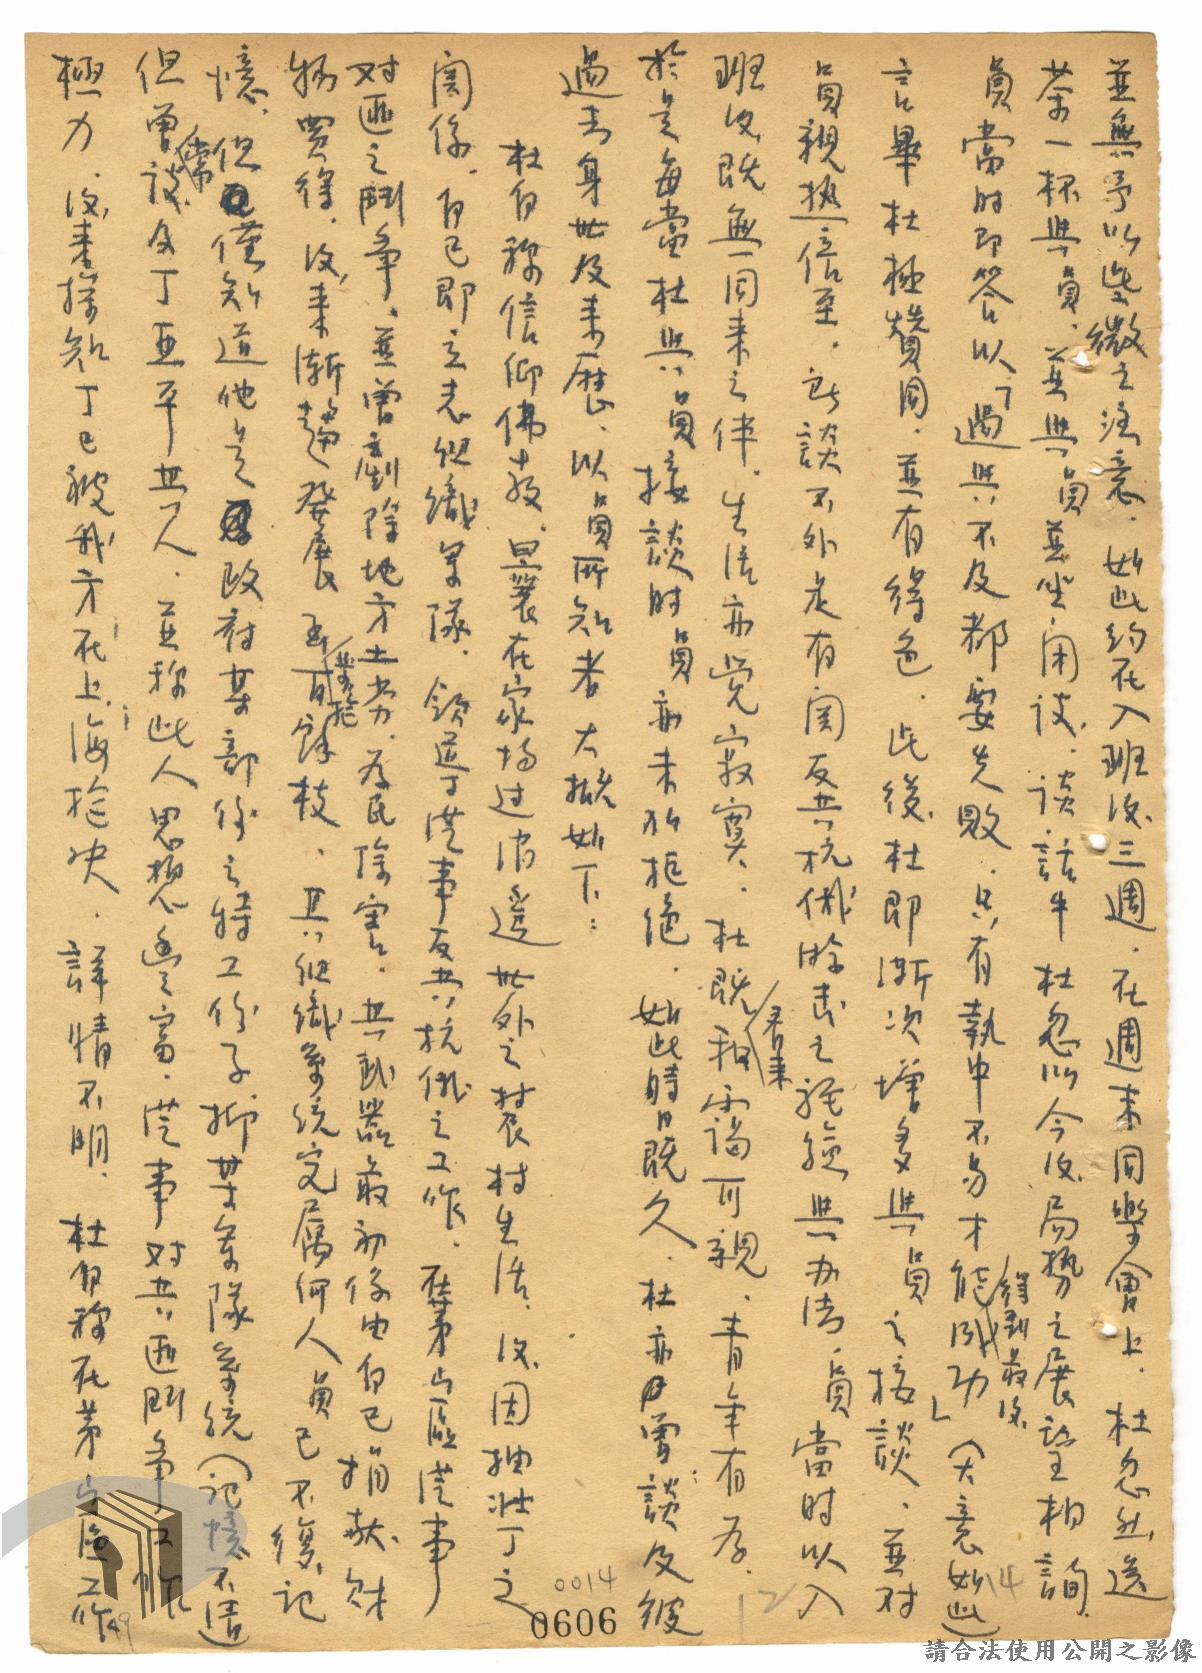 並無予以些微之注意．如此約在入班後三週．在週末同樂會上．杜忽然送
茶一杯與員．並與員並坐閒談．談話中杜忽以今後局勢之展望相詢
員當時即答以「過與不及都要失敗．只有執中不易才能得到最後成功」(大意如此)
言畢杜極贊同．並有得色．此後杜即漸次增多與員之接談．並對
員親熱倍至．所談不外是有關反共抗俄游击之經驗與办法．員當時以入
班後既無同來之伴．生活亦覺寂寞．杜既看來和靄可親．青年有為．
於是每當杜與員接談時員亦未加拒絕．如此時日既久．杜亦曾談及彼
過去身世及來歷．以員所知者大概如下：
杜自称信仰佛教．曩在家場过消遥世外之農村生活．後因抽壯丁之
関係．自己即立志組織羣隊．領導從事反共抗俄之工作．在茅山區從事
对匪之鬥爭．並曾剷除地方土劣．為民除害．其武器最初係由自己捐献財
物買得．後來漸趨發展至百餘枝．其組織系統究屬何人員已不復記
憶．但僅知道他是政府某部份之特工份子抑某羣隊系統(記憶不清)
但曾常談及丁亚平其人．並称此人思想豐富．從事对共匪鬥爭工作
極力．後來探知丁已被我方在上海槍決．詳情不明．杜自称在茅山區工作
0014
0606
請合法使用公開之影像